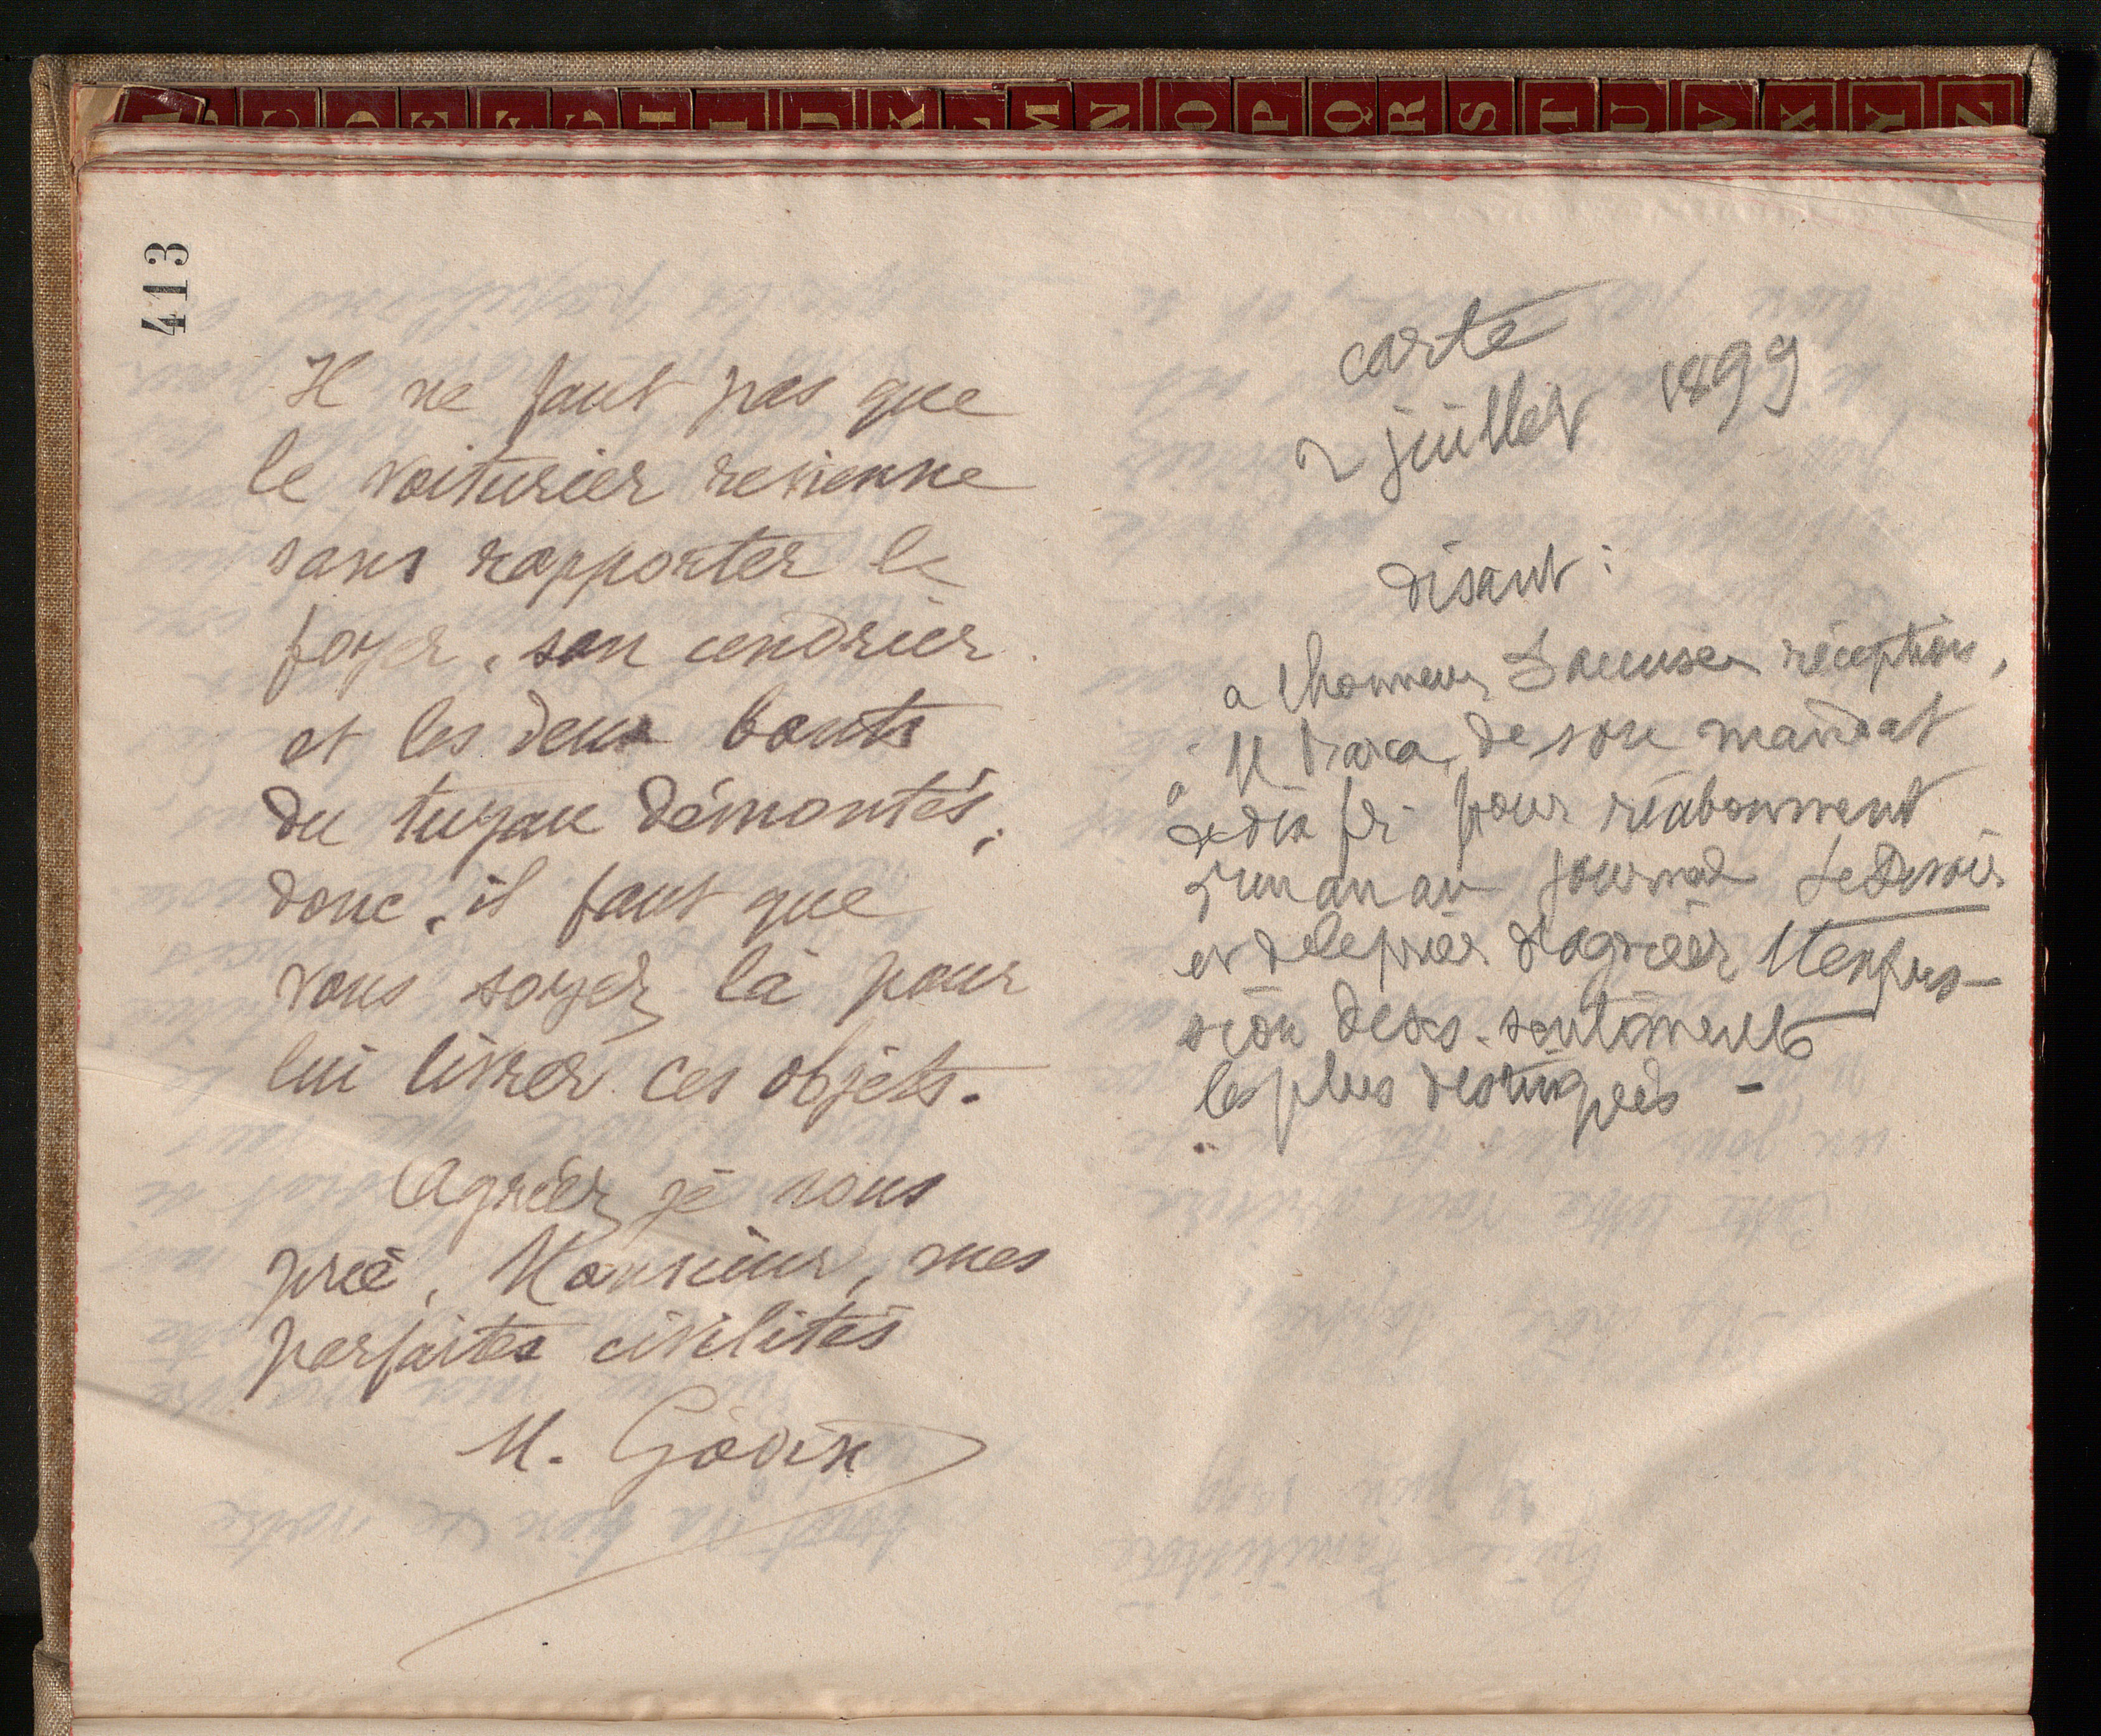 A B C D E F G H I J K L M N O P Q R S T U V X Y Z
413
Il ne faut pas que
le voiturier revienne
sans rapporter le
foyer, son cendrier
et les deux bouts
du tuyau démontés;
donc, il faut que
vous soyez là pour
lui livrer ces objets.
Agréez, je vous
prie, Monsieur, mes
parfaites civilités
M. Godin
carte
2 juillet 1899
disant :
a l'honneur d'accuser réception,
à M de son mandat
de dix fr. pour réabonnement
d'un an au journal Le Devoir
et de le prier d'agréer l'expres-
sion de ses sentiments
les plus distingués -